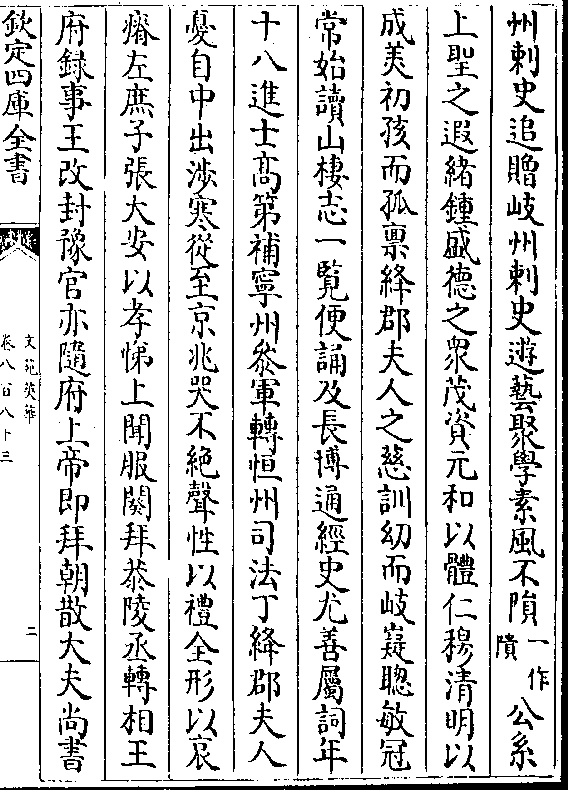 州刺史追贈岐州刺史遊藝聚學素風不隕一作隤公系
上聖之遐緒鍾盛德之衆茂資元和以體仁穆清明以
成美初孩而孤禀絳郡夫人之慈訓幼而岐嶷聰敏冠
常始讀山棲志一覧便誦及長博通經史尤善屬詞年
十八進士髙第補寧州叅軍轉恒州司法丁絳郡夫人
憂自中出涉寒從至京兆哭不絶聲性以禮全形以哀
瘠左庶子張大安以孝悌上聞服闋拜恭陵丞轉相王
府録事王改封豫官亦隨府上帝即拜朝散大夫尚書
欽定四庫全書
文苑英華
卷八百八十三
二